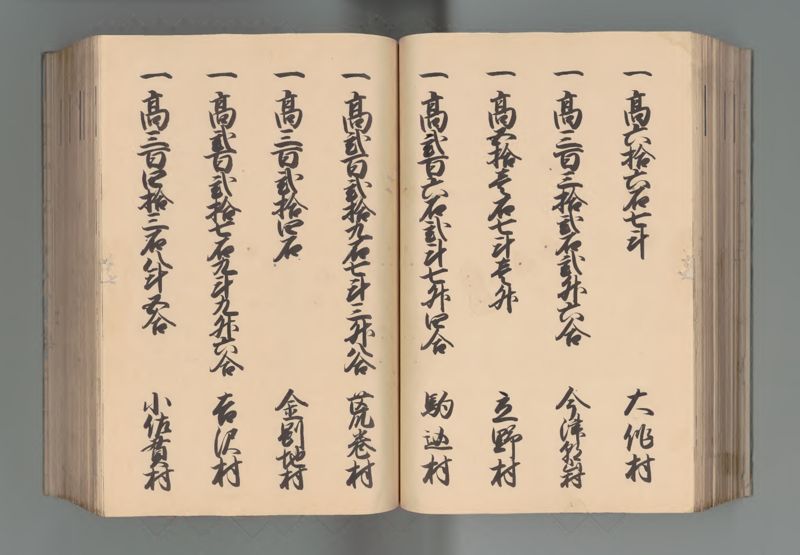 一 高六拾六石七斗 大作村
一 高三百三拾弐石弐升六合 今津朝山村
一 高五拾壱石七斗壱升 立野村
一 高弐百六石弐斗七升四合 駒込村
一 高弐百弐拾九石七斗三升八合 荒巻村
一 高三百弐拾四石 金剛地村
一 高弐百弐拾七石九斗九升六合 吉沢村
一 高三百四拾三石八斗五合 小佐貫村